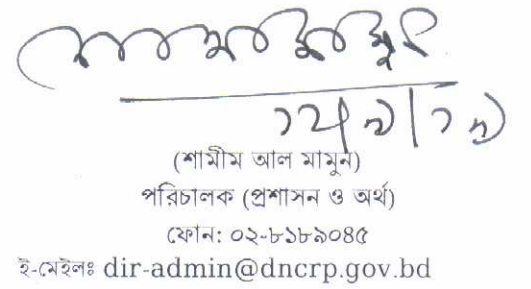 (শামীম আল মামুন)
পরিচালক (প্রশাসন ও অর্থ)
ফোন: ০২-৮১৮৯০৪৫
ই-মেইলঃ dir-admin@dncrp.gov.bd